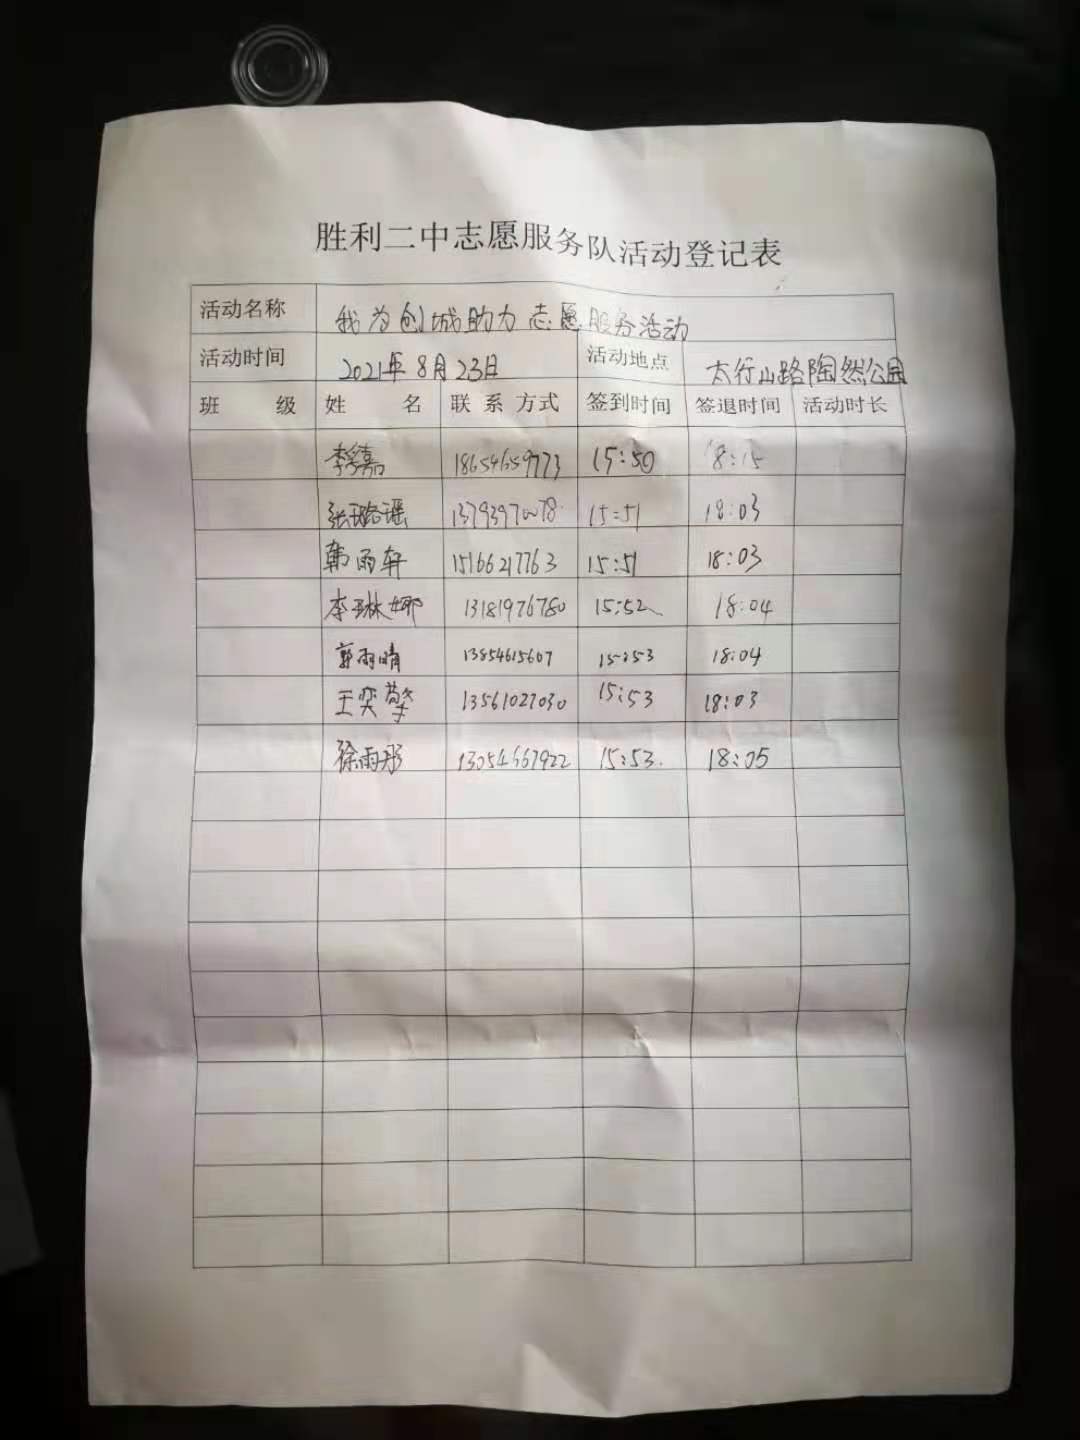 胜利二中志愿服务队活动登记表
活动名称 我为创城助力志愿服务活动
活动时间 2021年8月23日 活动地点 太行山路陶然公园
班 级 姓 名 联 系 方式 签到时间 签退时间 活动时长
李嘉 18654659773 15:50 18:15
张璐瑶 13793970078 15:51 18:03
韩雨轩 15166217763 15:51 18:03
李琳娜 13181976780 15:52 18:04
郭雨晴 13854615607 15:53 18:04
王奕擎 13561027030 15:53 18:03
徐雨彤 13054667922 15:53. 18:05